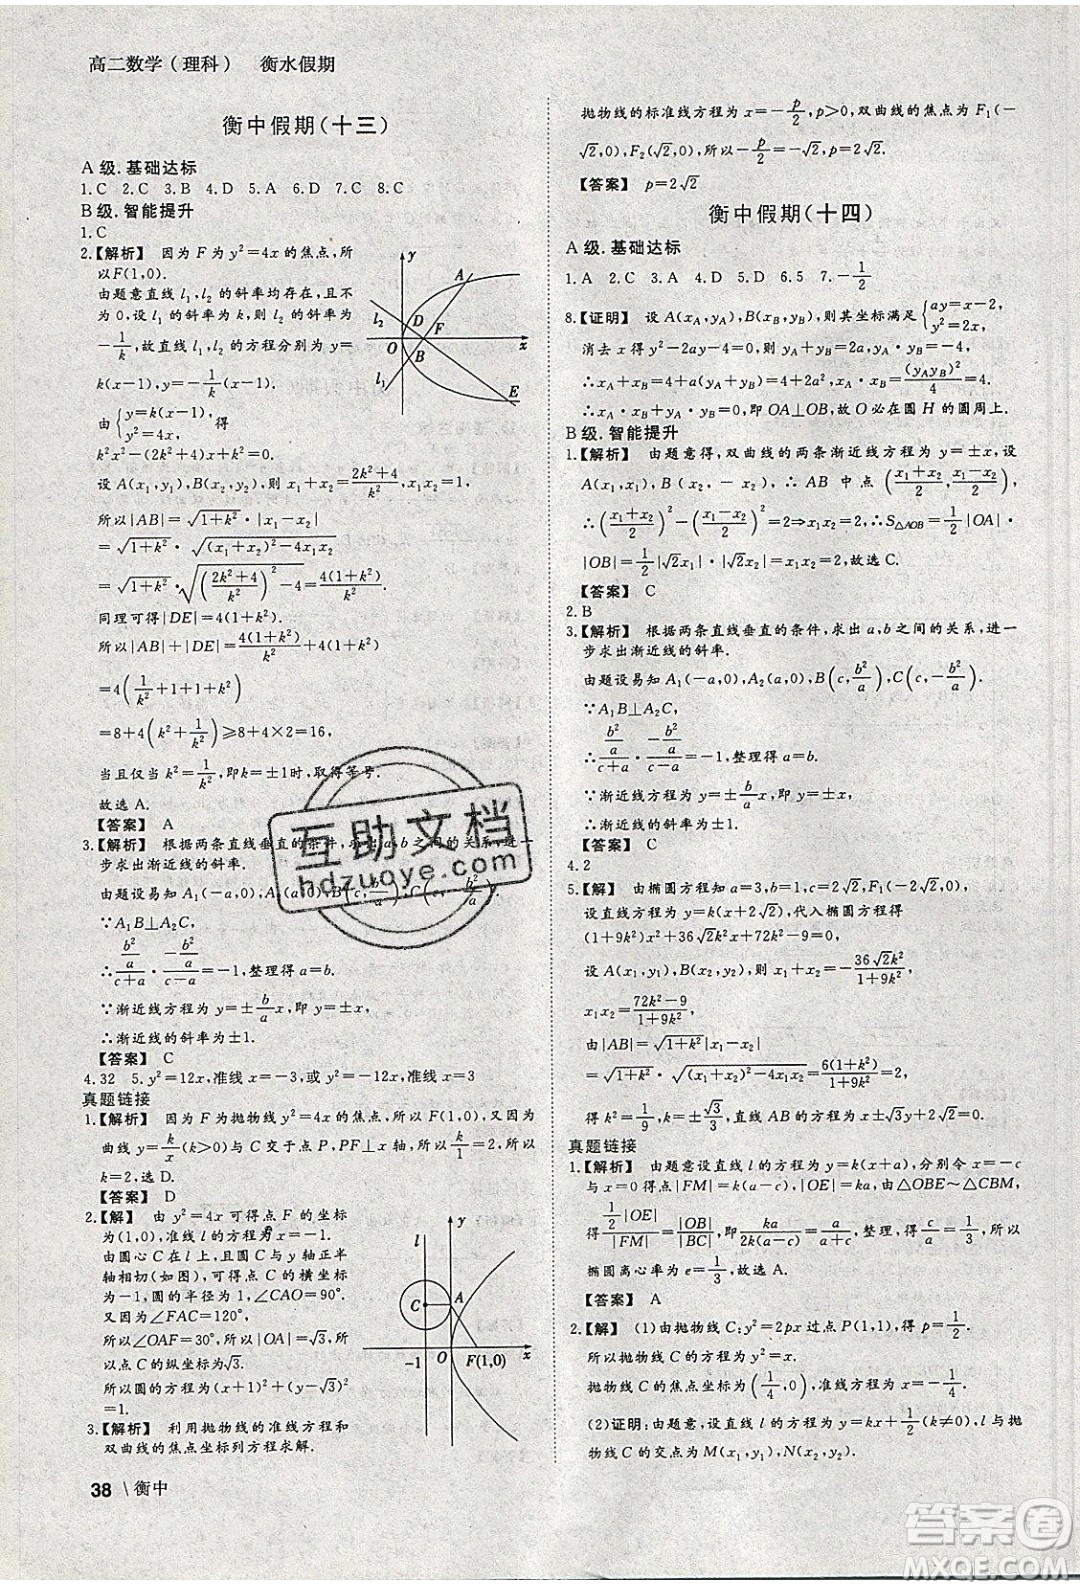 高二数学(理科) 衡水假期
衡中假期(十三)
A级.基础达标
1.C 2.C 3.B 4.D 5.A 6.D 7.C 8.C
B级.智能提升
1.C
2.【解析】 因为F为y²=4x的焦点,所
以F(1,0).
由题意直线l₁,l₂的斜率均存在,且不
为0,设l₁的斜率为k,则l₂的斜率为
-1/k,故直线l₁,l₂的方程分别为y=
k(x-1),y=-1/k(x-1).
由{y=k(x-1), y²=4x,得
k²x²-(2k²+4)x+k²=0.
设A(x₁,y₁),B(x₂,y₂),则x₁+x₂=(2k²+4)/k²,x₁x₂=1,
所以|AB|=√(1+k²)·|x₁-x₂|
=√(1+k²)·√((x₁+x₂)²-4x₁x₂)
=√(1+k²)·√(((2k²+4)/k²)²-4)=4(1+k²)/k².
同理可得|DE|=4(1+k²).
所以|AB|+|DE|=4(1+k²)/k²+4(1+k²)
=4(1/k²+1+1+k²)
=8+4(k²+1/k²)≥8+4×2=16,
当且仅当k²=1/k²,即k=±1时,取得等号.
故选A.
【答案】 A
3.【解析】 根据两条直线垂直的条件,求出a,b之间的关系,进一
步求出渐近线的斜率.
由题设易知A₁(-a,0),A₂(a,0),B(c,b²/a),C(c,-b²/a).
∵A₁B⊥A₂C,
∴(b²/a)/(c+a)·(-b²/a)/(c-a)=-1,整理得a=b.
∵渐近线方程为y=±b/a x,即y=±x,
∴渐近线的斜率为±1.
【答案】 C
4.32 5.y²=12x,准线x=-3,或y²=-12x,准线x=3
真题链接
1.【解析】 因为F为抛物线y²=4x的焦点,所以F(1,0),又因为
曲线y=k/x(k>0)与C交于点P,PF⊥x轴,所以k/1=2,所以
k=2,选D.
【答案】 D
2.【解】 由y²=4x可得点F的坐标
为(1,0),准线l的方程为x=-1.
由圆心C在l上,且圆C与y轴正半
轴相切(如图),可得点C的横坐标
为-1,圆的半径为1,∠CAO=90°.
又因为∠FAC=120°,
所以∠OAF=30°,所以|OA|=√3,
所以点C的纵坐标为√3.
所以圆的方程为(x+1)²+(y-√3)²
=1.
3.【解析】 利用抛物线的准线方程和
双曲线的焦点坐标列方程求解.
y
A
l₂
D
F
O
B
x
l₁
E
y
l
C
A
-1
O
F(1,0)
x
38\衡中
抛物线的标准线方程为x=-p/2,p>0,双曲线的焦点为F₁(-
√2,0),F₂(√2,0),所以-p/2=-√2,p=2√2
【答案】 p=2√2
衡中假期(十四)
A级.基础达标
1.A 2.C 3.A 4.D 5.D 6.5 7.-1/2
8.【证明】 设A(x_A,y_A),B(x_B,y_B),则其坐标满足{ay=x-2, y²=2x,
消去x得y²-2ay-4=0,则y_A+y_B=2a,y_Ay_B=-4,
∴x_A+x_B=4+(y_A+y_B)a=4+2a²,x_A·x_B=(y_Ay_B)²/4=4.
∴x_A·x_B+y_A·y_B=0,即OA⊥OB,故O必在圆H的圆周上.
B级.智能提升
1.【解析】 由题意得,双曲线的两条渐近线方程为y=±x,设
A(x₁,x₁),B(x₂,-x₂),∴AB中点((x₁+x₂)/2,(x₁-x₂)/2),
∴((x₁+x₂)/2)²-((x₁-x₂)/2)²=2⇒x₁x₂=2,∴S△AOB=1/2|OA|·
|OB|=1/2|√2x₁|·|√2x₂|=x₁x₂=2,故选C.
【答案】 C
2.B
3.【解析】 根据两条直线垂直的条件,求出a,b之间的关系,进一
步求出渐近线的斜率.
由题设易知A₁(-a,0),A₂(a,0),B(c,b²/a),C(c,-b²/a).
∵A₁B⊥A₂C,
∴(b²/a)/(c+a)·(-b²/a)/(c-a)=-1,整理得a=b.
∵渐近线方程为y=±b/a x,即y=±x,
∴渐近线的斜率为±1.
【答案】 C
4.2
5.【解】 由椭圆方程知a=3,b=1,c=2√2,F₁(-2√2,0),
设直线方程为y=k(x+2√2),代入椭圆方程得
(1+9k²)x²+36√2k²x+72k²-9=0,
设A(x₁,y₁),B(x₂,y₂),则x₁+x₂=-36√2k²/(1+9k²),
x₁x₂=(72k²-9)/(1+9k²)
由|AB|=√(1+k²)|x₁-x₂|
=√(1+k²)·√((x₁+x₂)²-4x₁x₂)=6(1+k²)/(1+9k²)=2,
得k²=1/9,k=±√3/3,直线AB的方程为x±√3y+2√2=0.
真题链接
1.【解析】 由题意设直线l的方程为y=k(x+a),分别令x=-c
与x=0得|FM|=k(a-c),|OE|=ka,由△OBE~△CBM,
得1/2|OE|/|FM|=|OB|/|BC|,即ka/2k(a-c)=a/(a+c),整理,得c/a=1/3,所以
椭圆离心率为e=1/3,故选A.
【答案】 A
2.【解】 (1)由抛物线C:y²=2px过点P(1,1),得p=1/2.
所以抛物线C的方程为y²=x.
抛物线C的焦点坐标为(1/4,0),准线方程为x=-1/4.
(2)证明:由题意,设直线l的方程为y=kx+1/2(k≠0),l与抛
物线C的交点为M(x₁,y₁),N(x₂,y₂).
互助文档
hdzuoye.com
答案圈
MXQE.COM